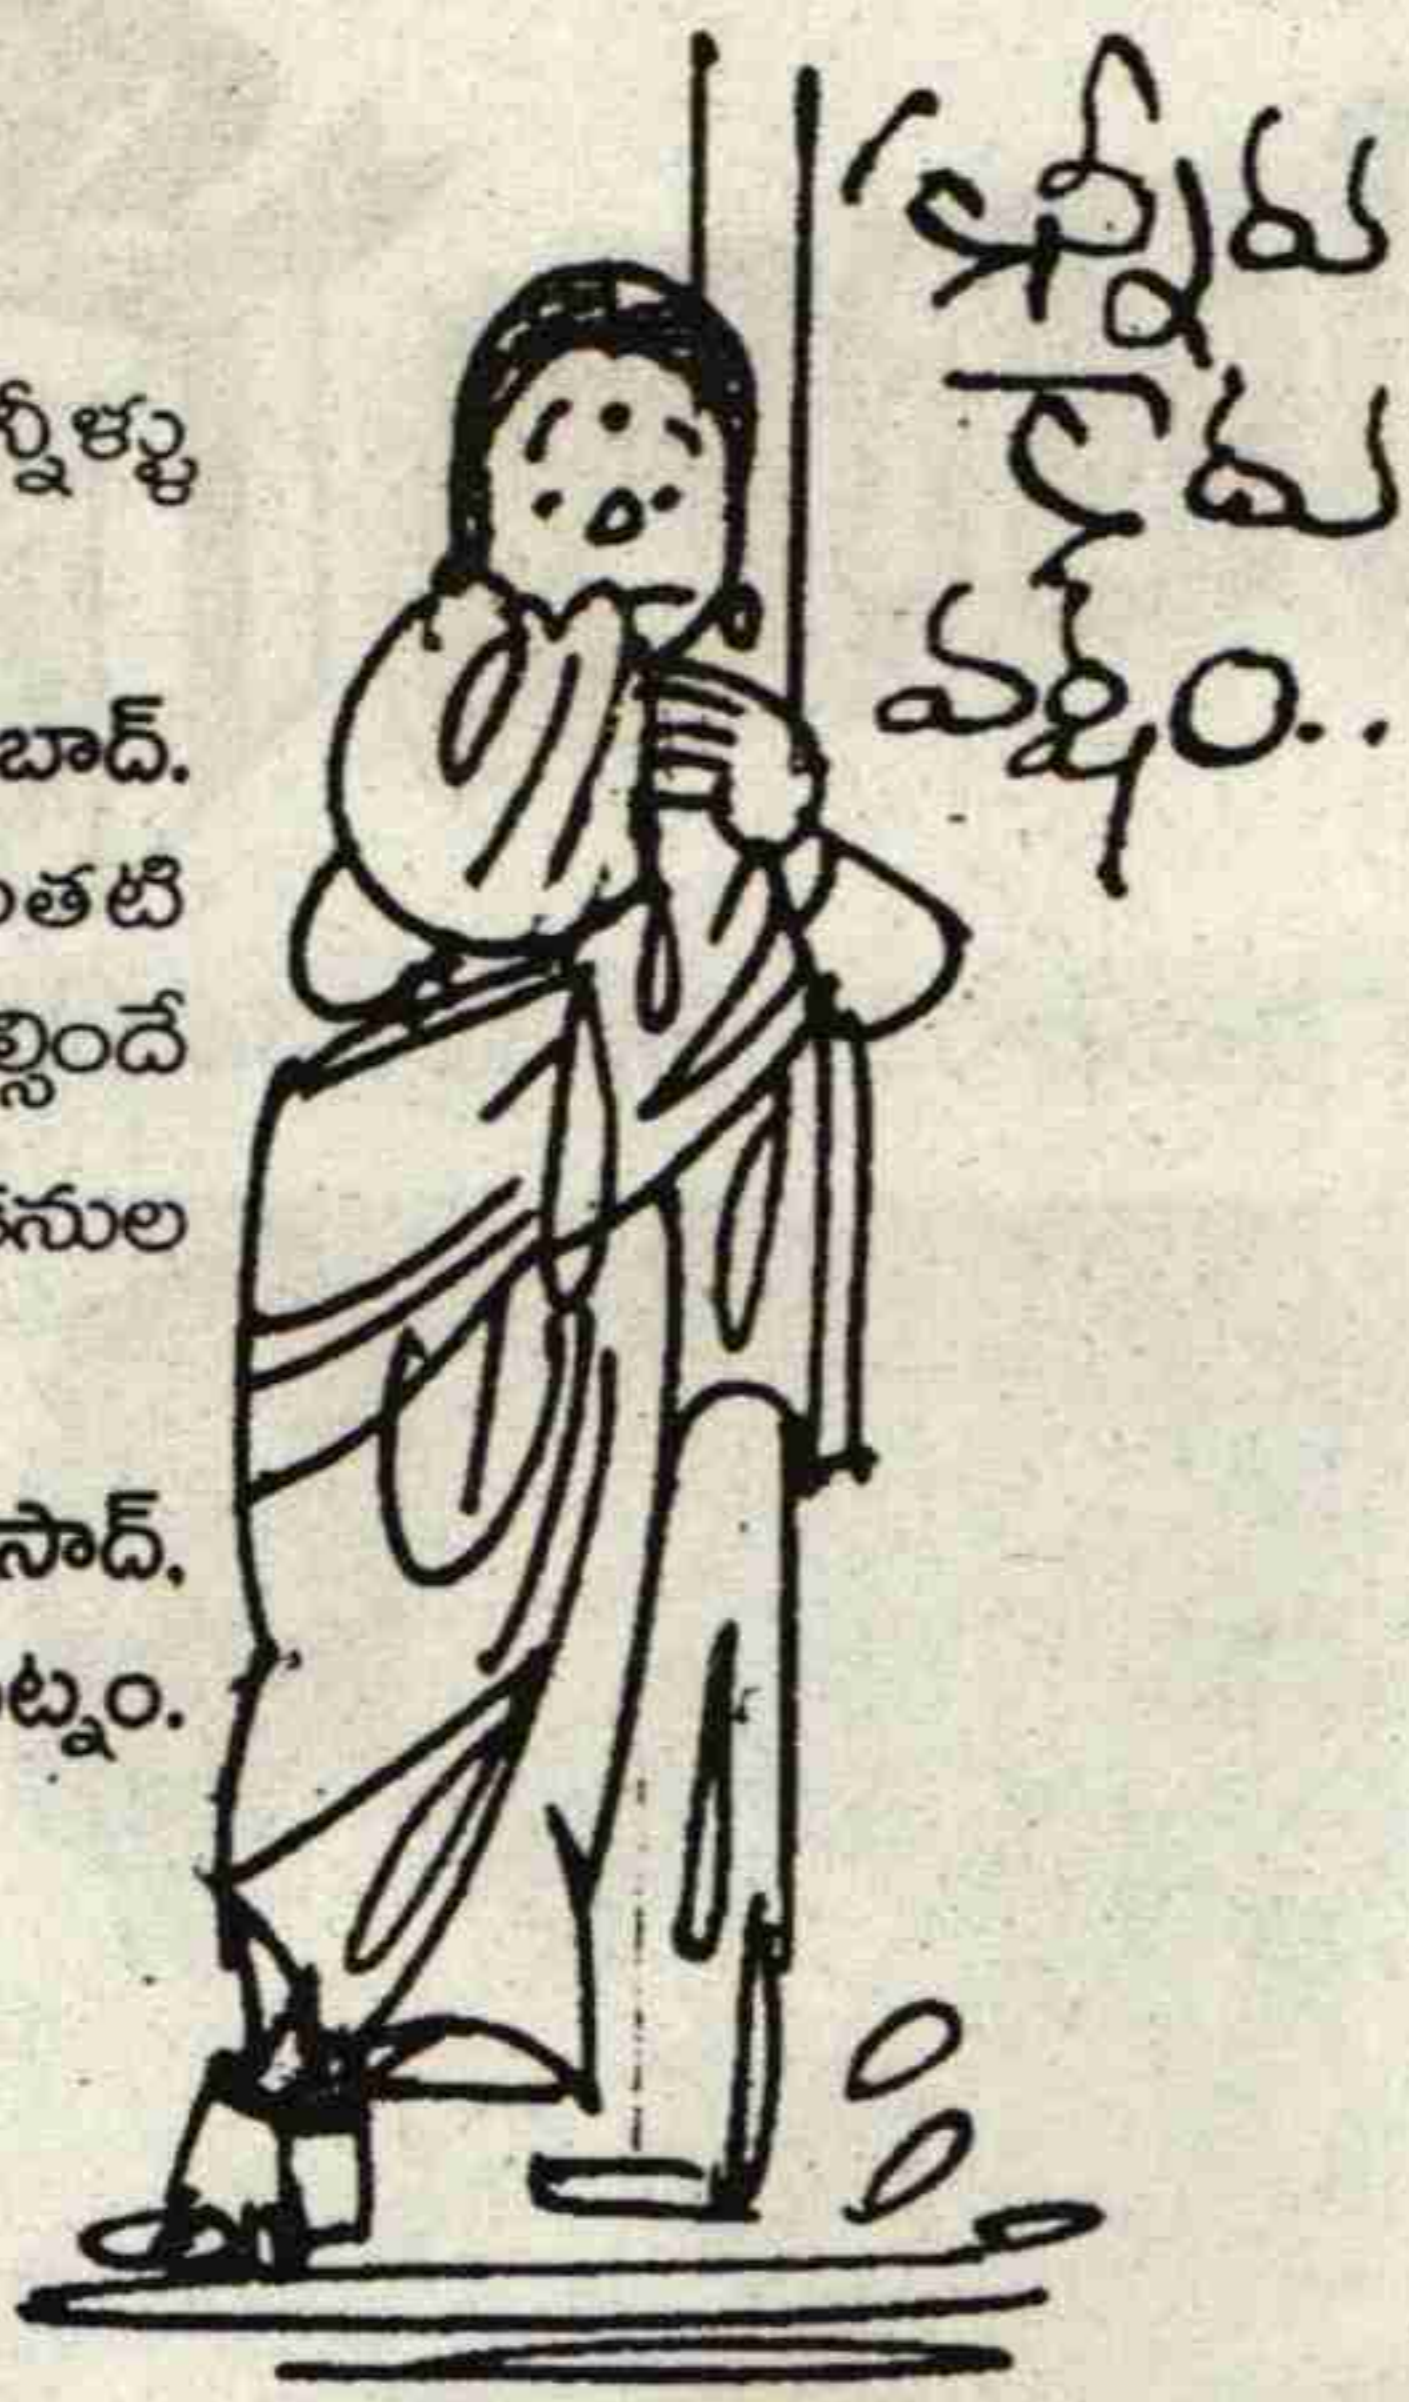 న్నీళ్ళు
బాద్.
ంతటి
ల్సిందే
తనుల
సాద్.
ట్నం.
కాదు
వర్షం..